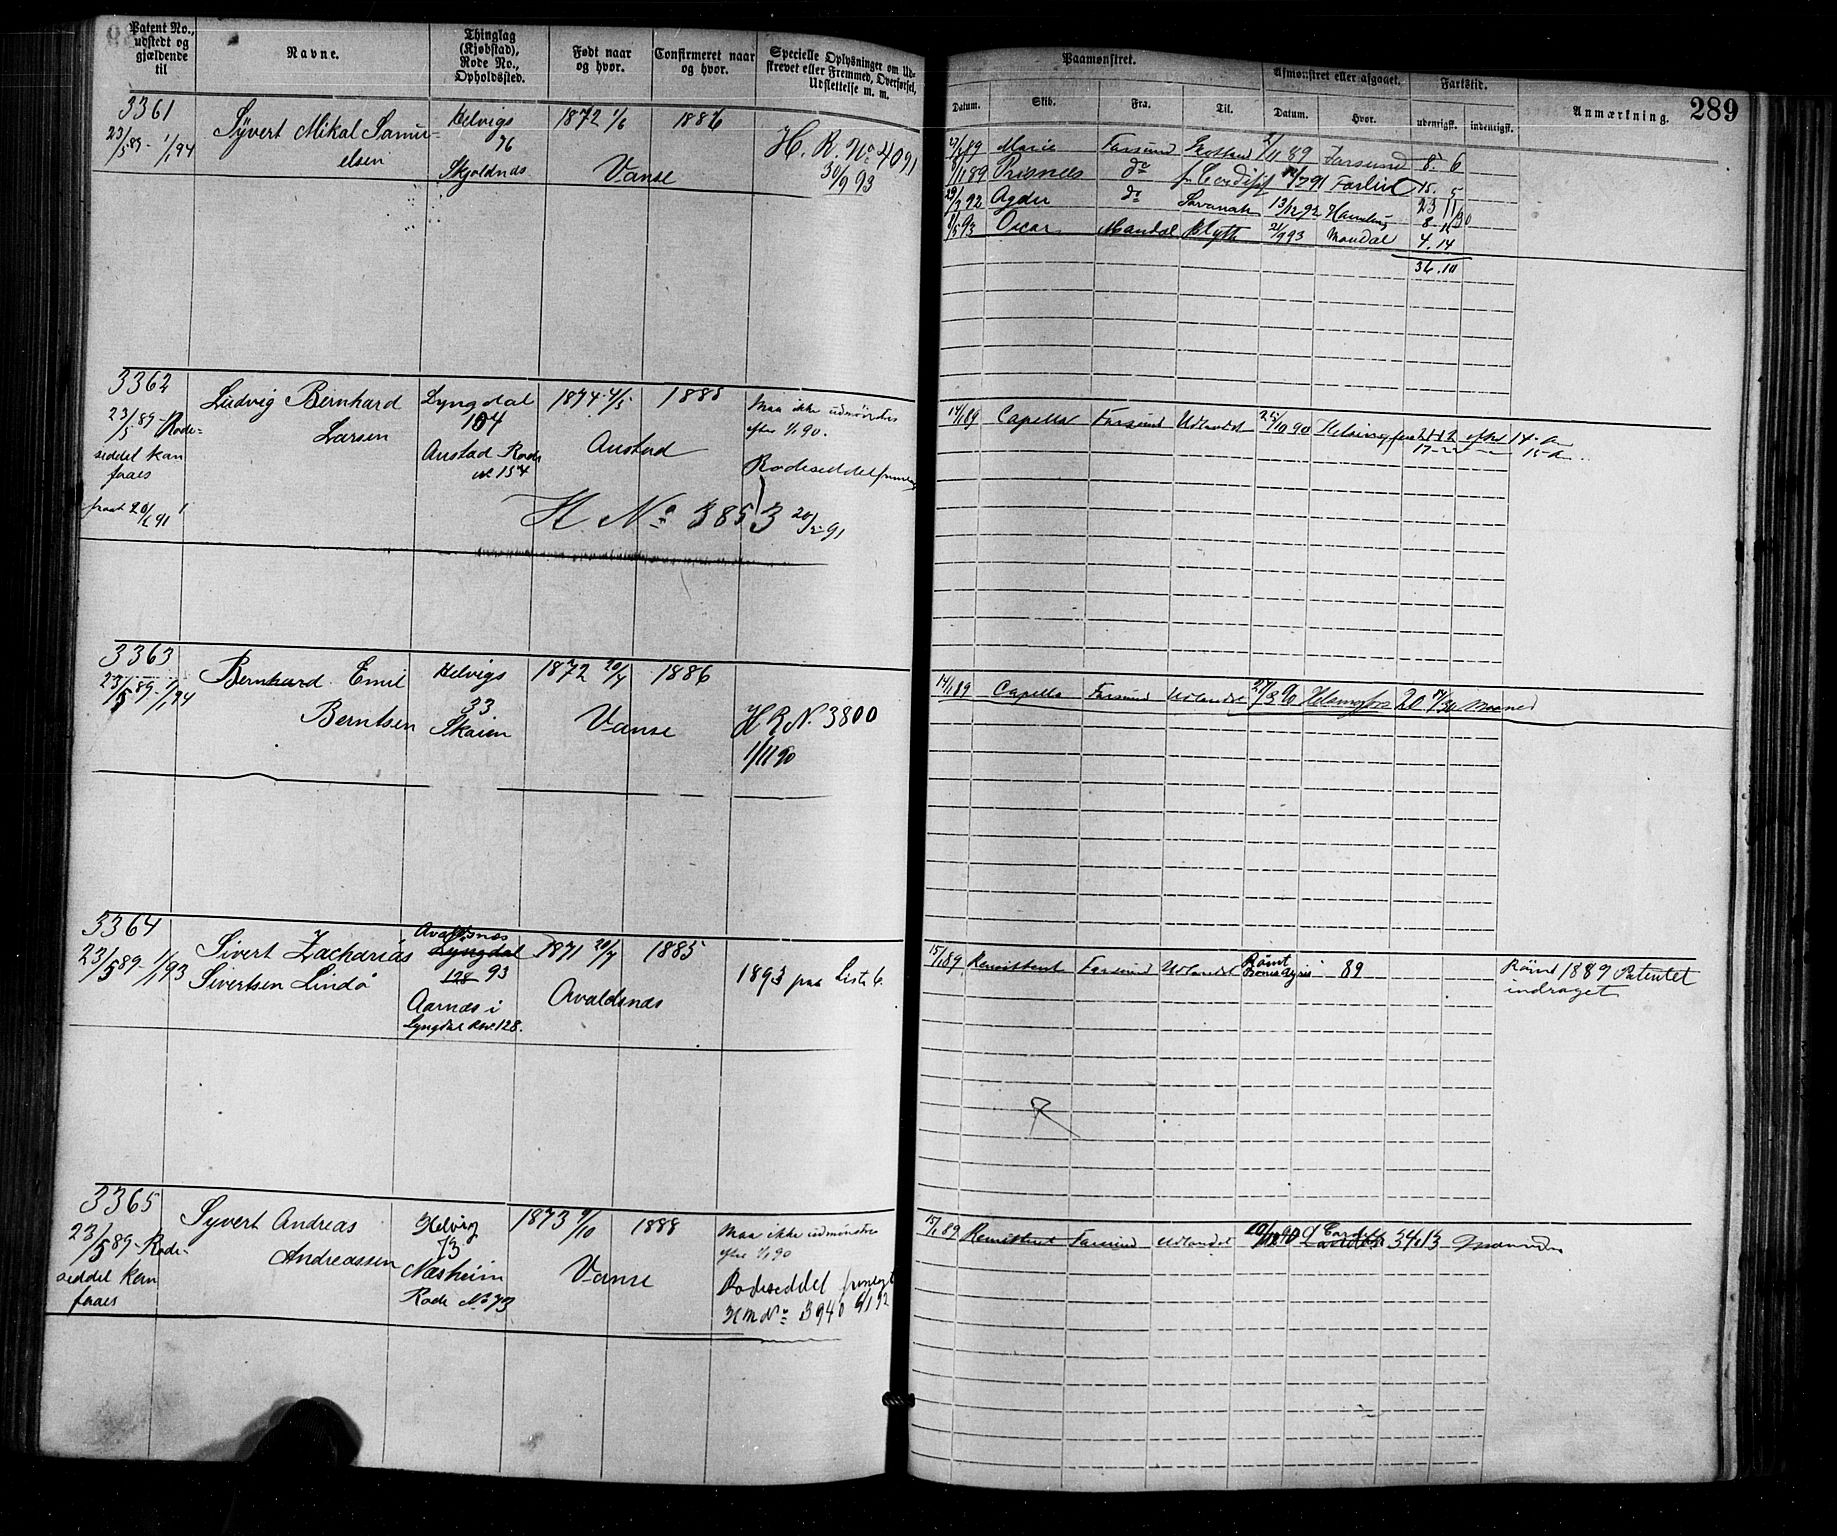 Patent No., udstedt og gjældende til
Navne.
Thinglag (Kjøbstad), Rode No., Opholdssted.
Født naar og hvor.
Confirmeret naar og hvor.
Specielle Oplysninger om Udskrevet eller Fremmed, Overførsel, Udslettelse m. m.
Paamønstret.
Afmønstret eller afgaaet.
Fartstid.
Anmærkning.
289
Datum.
Skib.
Fra.
Til.
Datum.
Hvor.
udenrigsk.
indenrigsk.
3361
23/5 89 - 1/1 94
Syvert Mikal Samu-
elsen
Helvigs
76
Skjoldnæs
1872 1/6
Vanse
1886
H. R. No 4091
30/9 93
Marie Farsund 89 Farsund 8. 6
11 89 do 91 15. 5
Agder do Savanah 13/12 92 23 11
8
5 93 Oscar Mandal Blyth 21/9 93 Mandal 4. 14
36. 10
3362
23/5 89 - Rode-
seddel kan
faaes
20/1 91
Ludvig Bernhard
Larsen
Lyngdal
104
Austad Rode
154
1874 4/5
Austad
1885
Maa ikke udmønstres
efter 1/1 90.
Rodeseddel
H. No 3853 20/2 91
14/1 89 Capella Farsund Udlandet 25/10 90
3363
23/5 89 - 1/1 94
Bernhard Emil
Berntsen
Helvigs
33
Skaien
1872 20/7
Vanse
1886
H R N. 3800
1/11 90
14/1 89 Capella Farsund Udlandet 90 Helsingfors 20 Maaned
3364
23/5 89 - 1/1 93
Sivert Zacharias
Sivertsen Lindø
Avaldsnæs
Lyngdal
128 93
Aarnæs i
Lyngdal 128.
1871 20/7
Avaldsnæs
1885
1893 paa Liste 6.
15/1 89 Remittent Farsund Udlandet Rømt
Buenos Ayres 89
Rømt 1889 Patentet
inddraget
3365
23/5 89 - Rode-
seddel kan
faaes
Syvert Andreas
Andreassen
Helvig
73
Næsheim
Rode No 73
1873 9/10
Vanse
1888
Maa ikke udmønstres
efter 1/1 90
Rodeseddel
H M No 3940 9/1 92
15/1 89 Remittent Farsund Udlandet 34 13